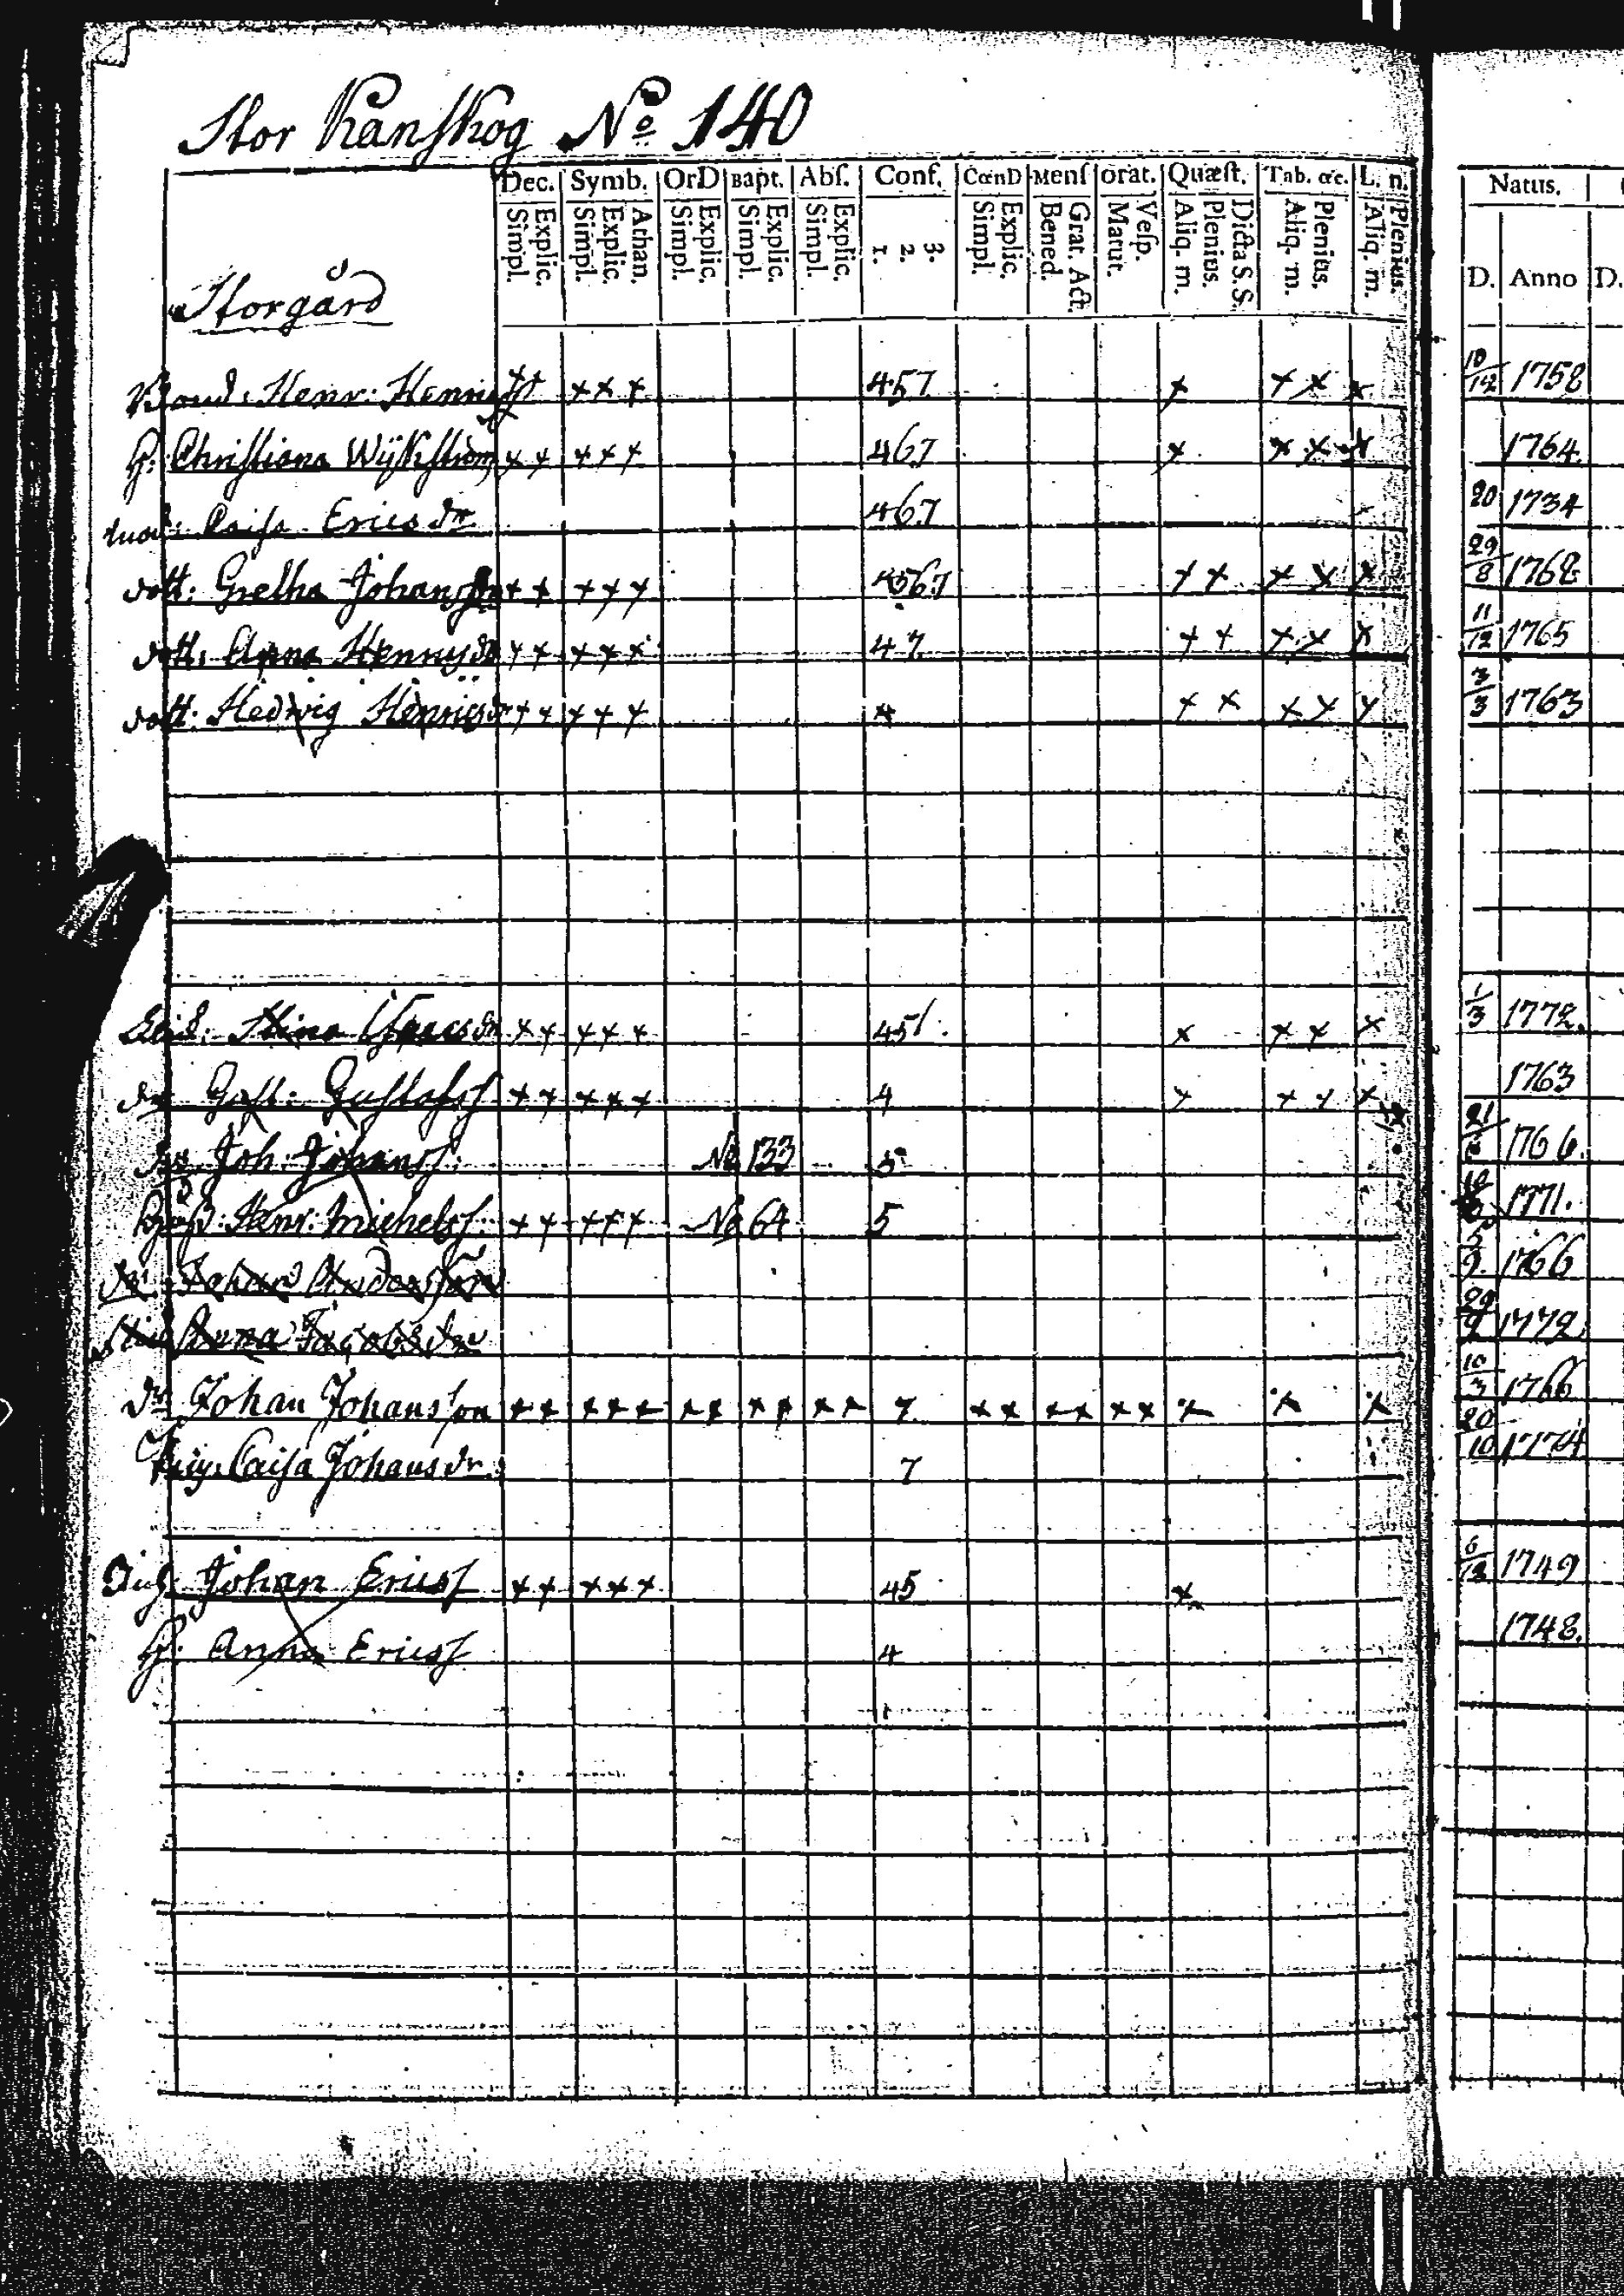 Stor Kanskog No 140
Dec. Symb. OrD Bapt. Abſ. Conf. CœnD Menſ orat. Quæſt. Tab. œc. L. n. Natus.
Simpl. Explic. Simpl. Explic. Athan. Simpl. Explic. Simpl. Explic. Simpl. Explic. 1. 2. 3. Simpl. Explic. Bened. Grat. Act. Matut. Veſp. Aliq. m. Plenius. Dicta S. S. Aliq. m. Plenius. Aliq. m. Plenius. D. Anno D.
Storgård
Bond: Henr: Henricss ++ +++ 457 + + + + 10/12 1758
H: Christiana Wÿkström ++ +++ 467 + + + + 1764.
Caisa Erics dr 467 20 1734
dott: Gretha Johans ++ +++ 4567 + + + + + 29/8 1768
dott: Anna Henrics dr ++ +++ 47 + + + + + 11/12 1765
dott: Hedvig Henrics dr ++ +++ 4 + + + + + 3/3 1763
Stina Isaacs dr ++ +++ 451. + + + + 1/3 1772.
dr Gust: Gustafss ++ +++ 4 + + + + 1763
dr Joh: Johanss: No 133 5 21 1766.
Henr: Michelss: ++ +++ No 64 5 1771.
dr Johan Andersson 5/9. 1766
Anna Jacobs dr 29 1772
dr Johan Johansson ++ +++ ++ ++ ++ 7. ++ ++ ++ + + + 10/3 1766
Caisa Johans dr. 7 20/10 1774
Johan Ericss ++ +++ 45 + 6/12 1749
H. Anna Ericss 4 1748.